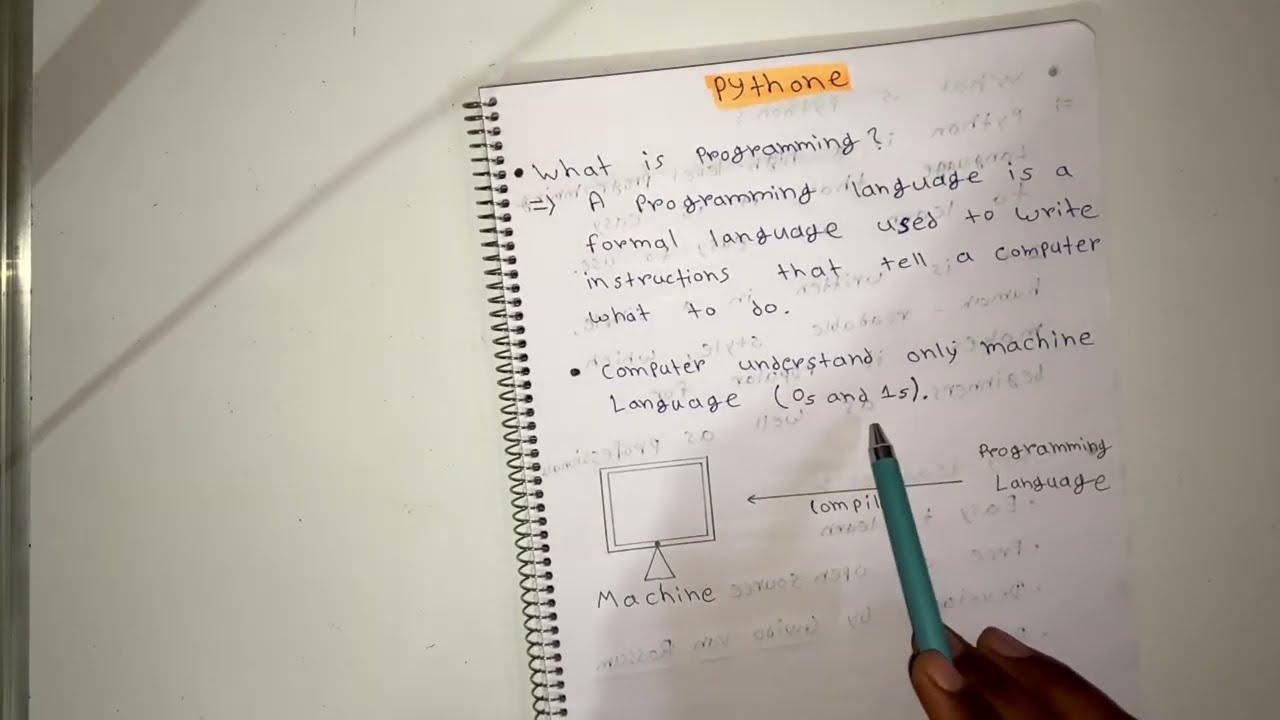 PYthone
• What is Programming?
=> A Programming language is a
formal language used to write
instructions that tell a computer
what to do.
• Computer understand only machine
Language (0s and 1s).
Programming
Language
Compil
Machine